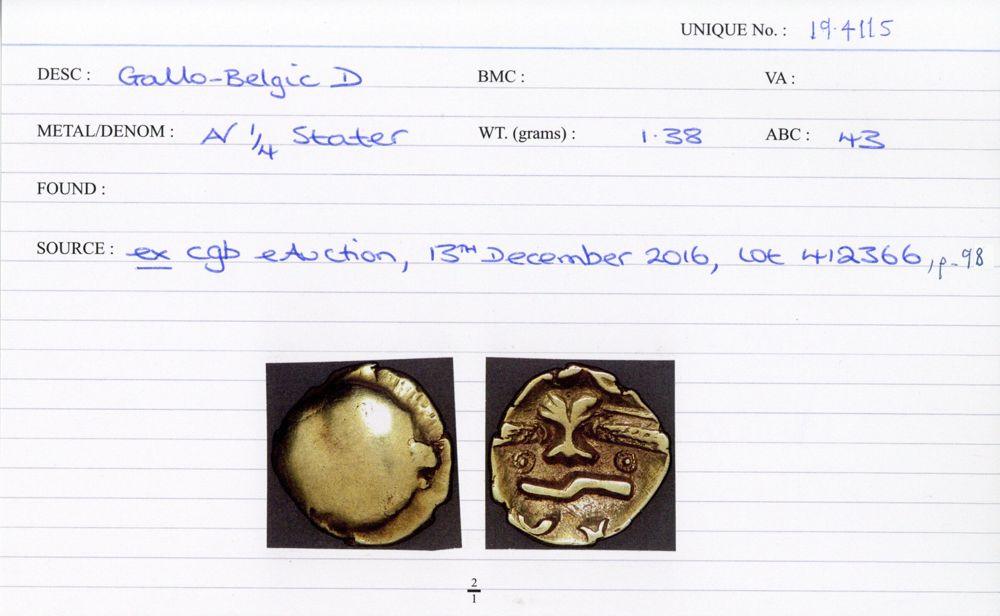 UNIQUE No. : 19.4115
DESC : Gallo-Belgic D BMC : VA :
METAL/DENOM : AV 1/4 Stater WT. (grams) : 1.38 ABC : 43
FOUND :
SOURCE : ex cgb eAuction, 13TH December 2016, Lot 412366, p.98
2/1